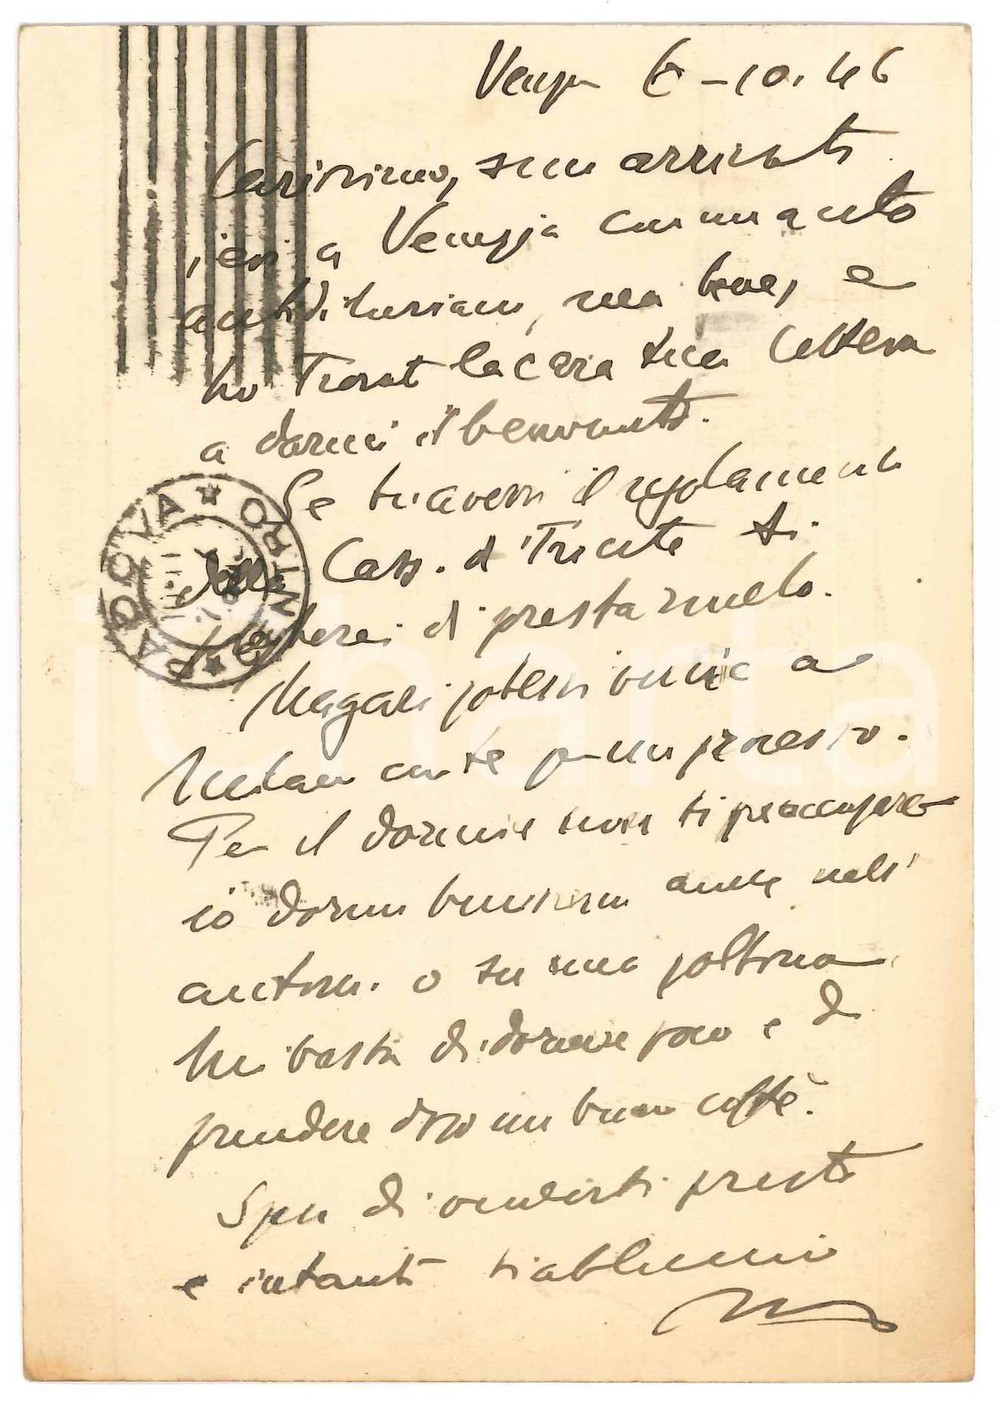 Venezia 6-10.46
Carissimo, sono arrivato
ieri a Venezia con un auto
ma bene, e
ho trovato la cara tua lettera
a darmi il benvenuto.
Se tu avessi il regolamento
della Cass. di Trieste ti
pregherei di prestarmelo.
Magari potessi venire a
Milano con te per un processo.
Per il dormire non ti preoccupare
io dormo benissimo anche nell'
autom. o su una poltrona.
Mi basta di dormire poco e di
prendere dopo un buon caffè.
Spero di vederti presto
e intanto ti abbraccio
PADOVA CENTRO